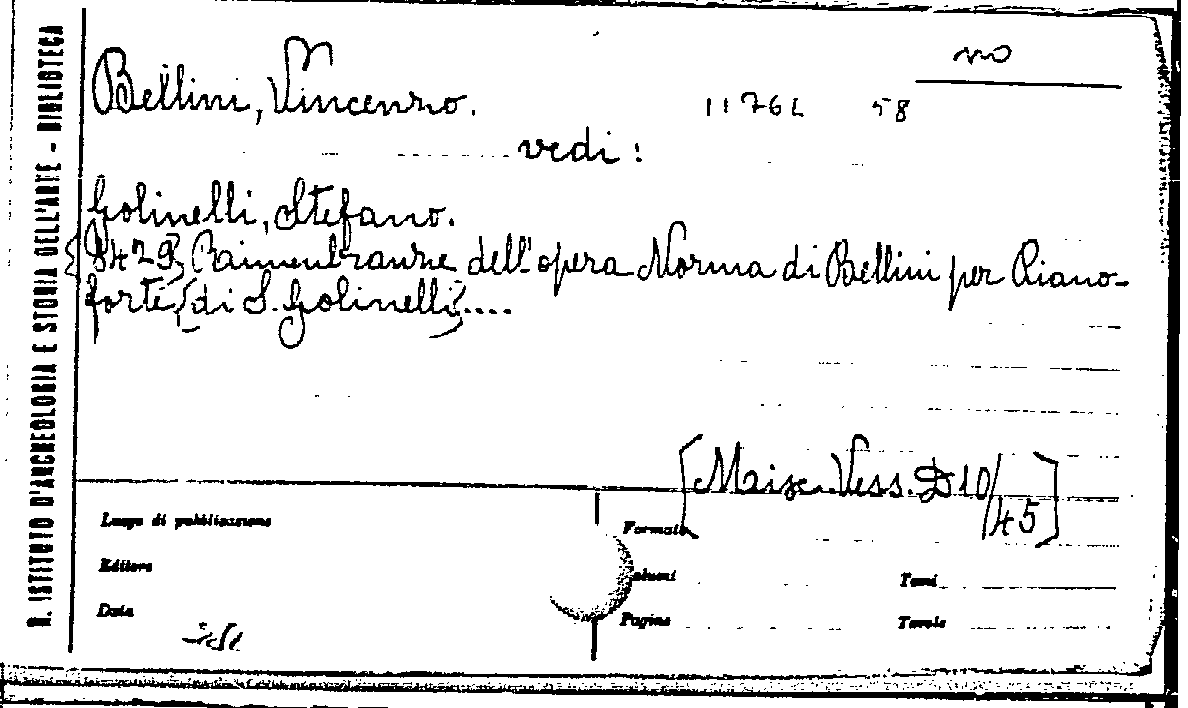 no
Bellini, Vincenzo.
11762 58
vedi:
Golinelli, Stefano.
Rimembranze dell'opera Norma di Bellini per Piano-
forte [di S. Golinelli]....
[Misc. Vess. D 10/45]
Luogo di pubblicazione
Formato
Editore
Volumi
Tomi
Data
Pagine
Tavole
R. ISTITUTO D'ARCHEOLOGIA E STORIA DELL'ARTE - BIBLIOTECA